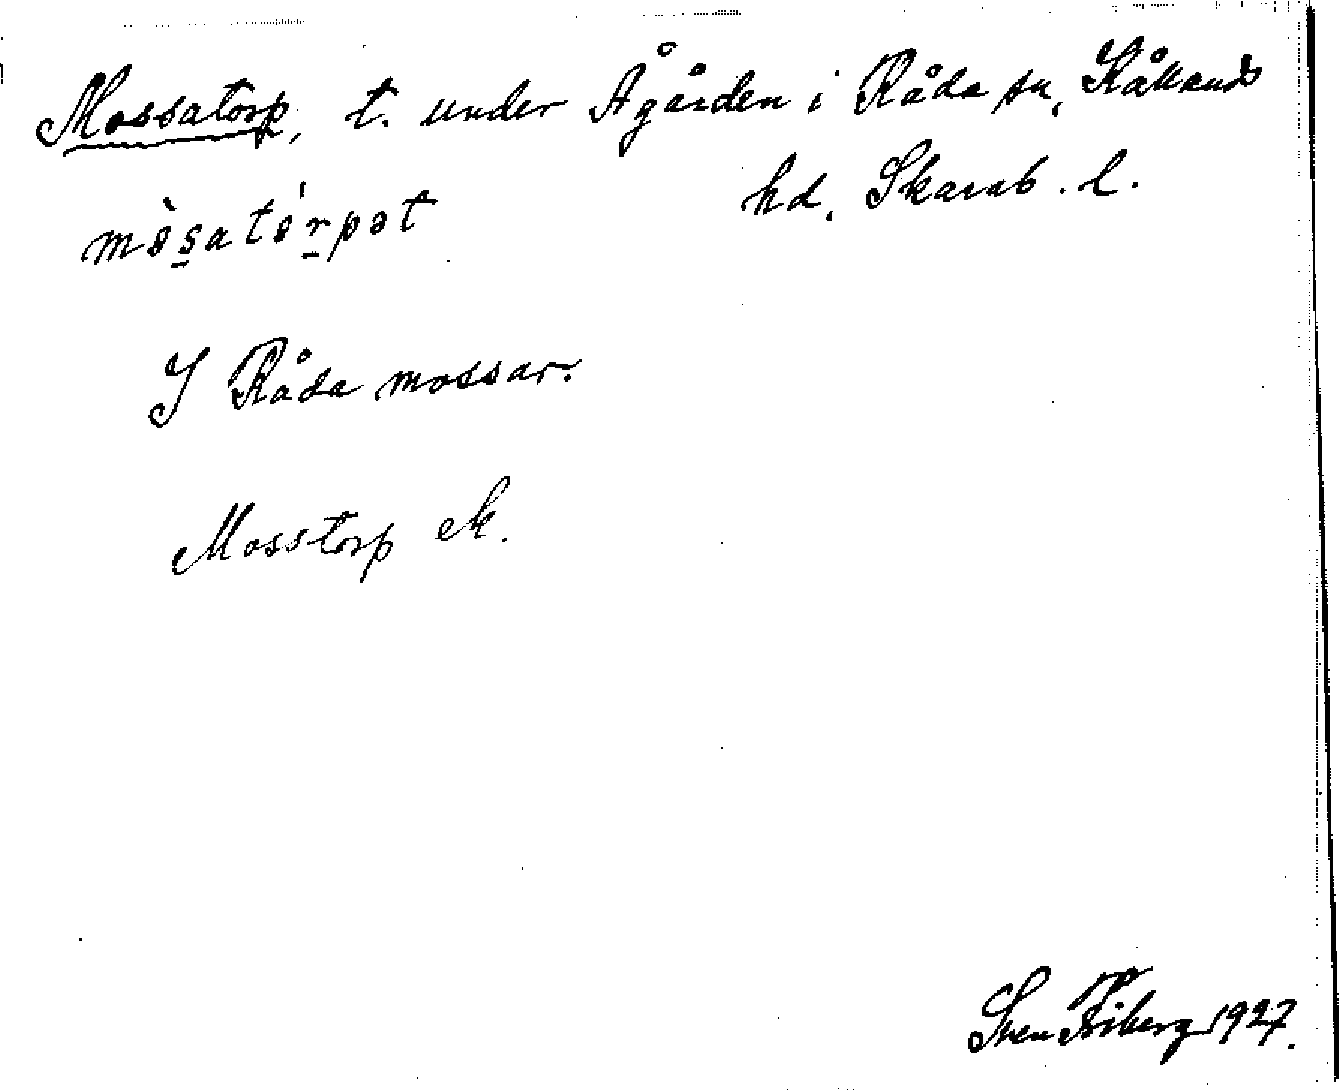 Mossatorp, t. under Ågården i Råda sn, Kållands
hd, Skarab. l.
mòs̱atóṟpət
I Råda mossar.
Mosstorp ek.
Sven Friberg 1927.